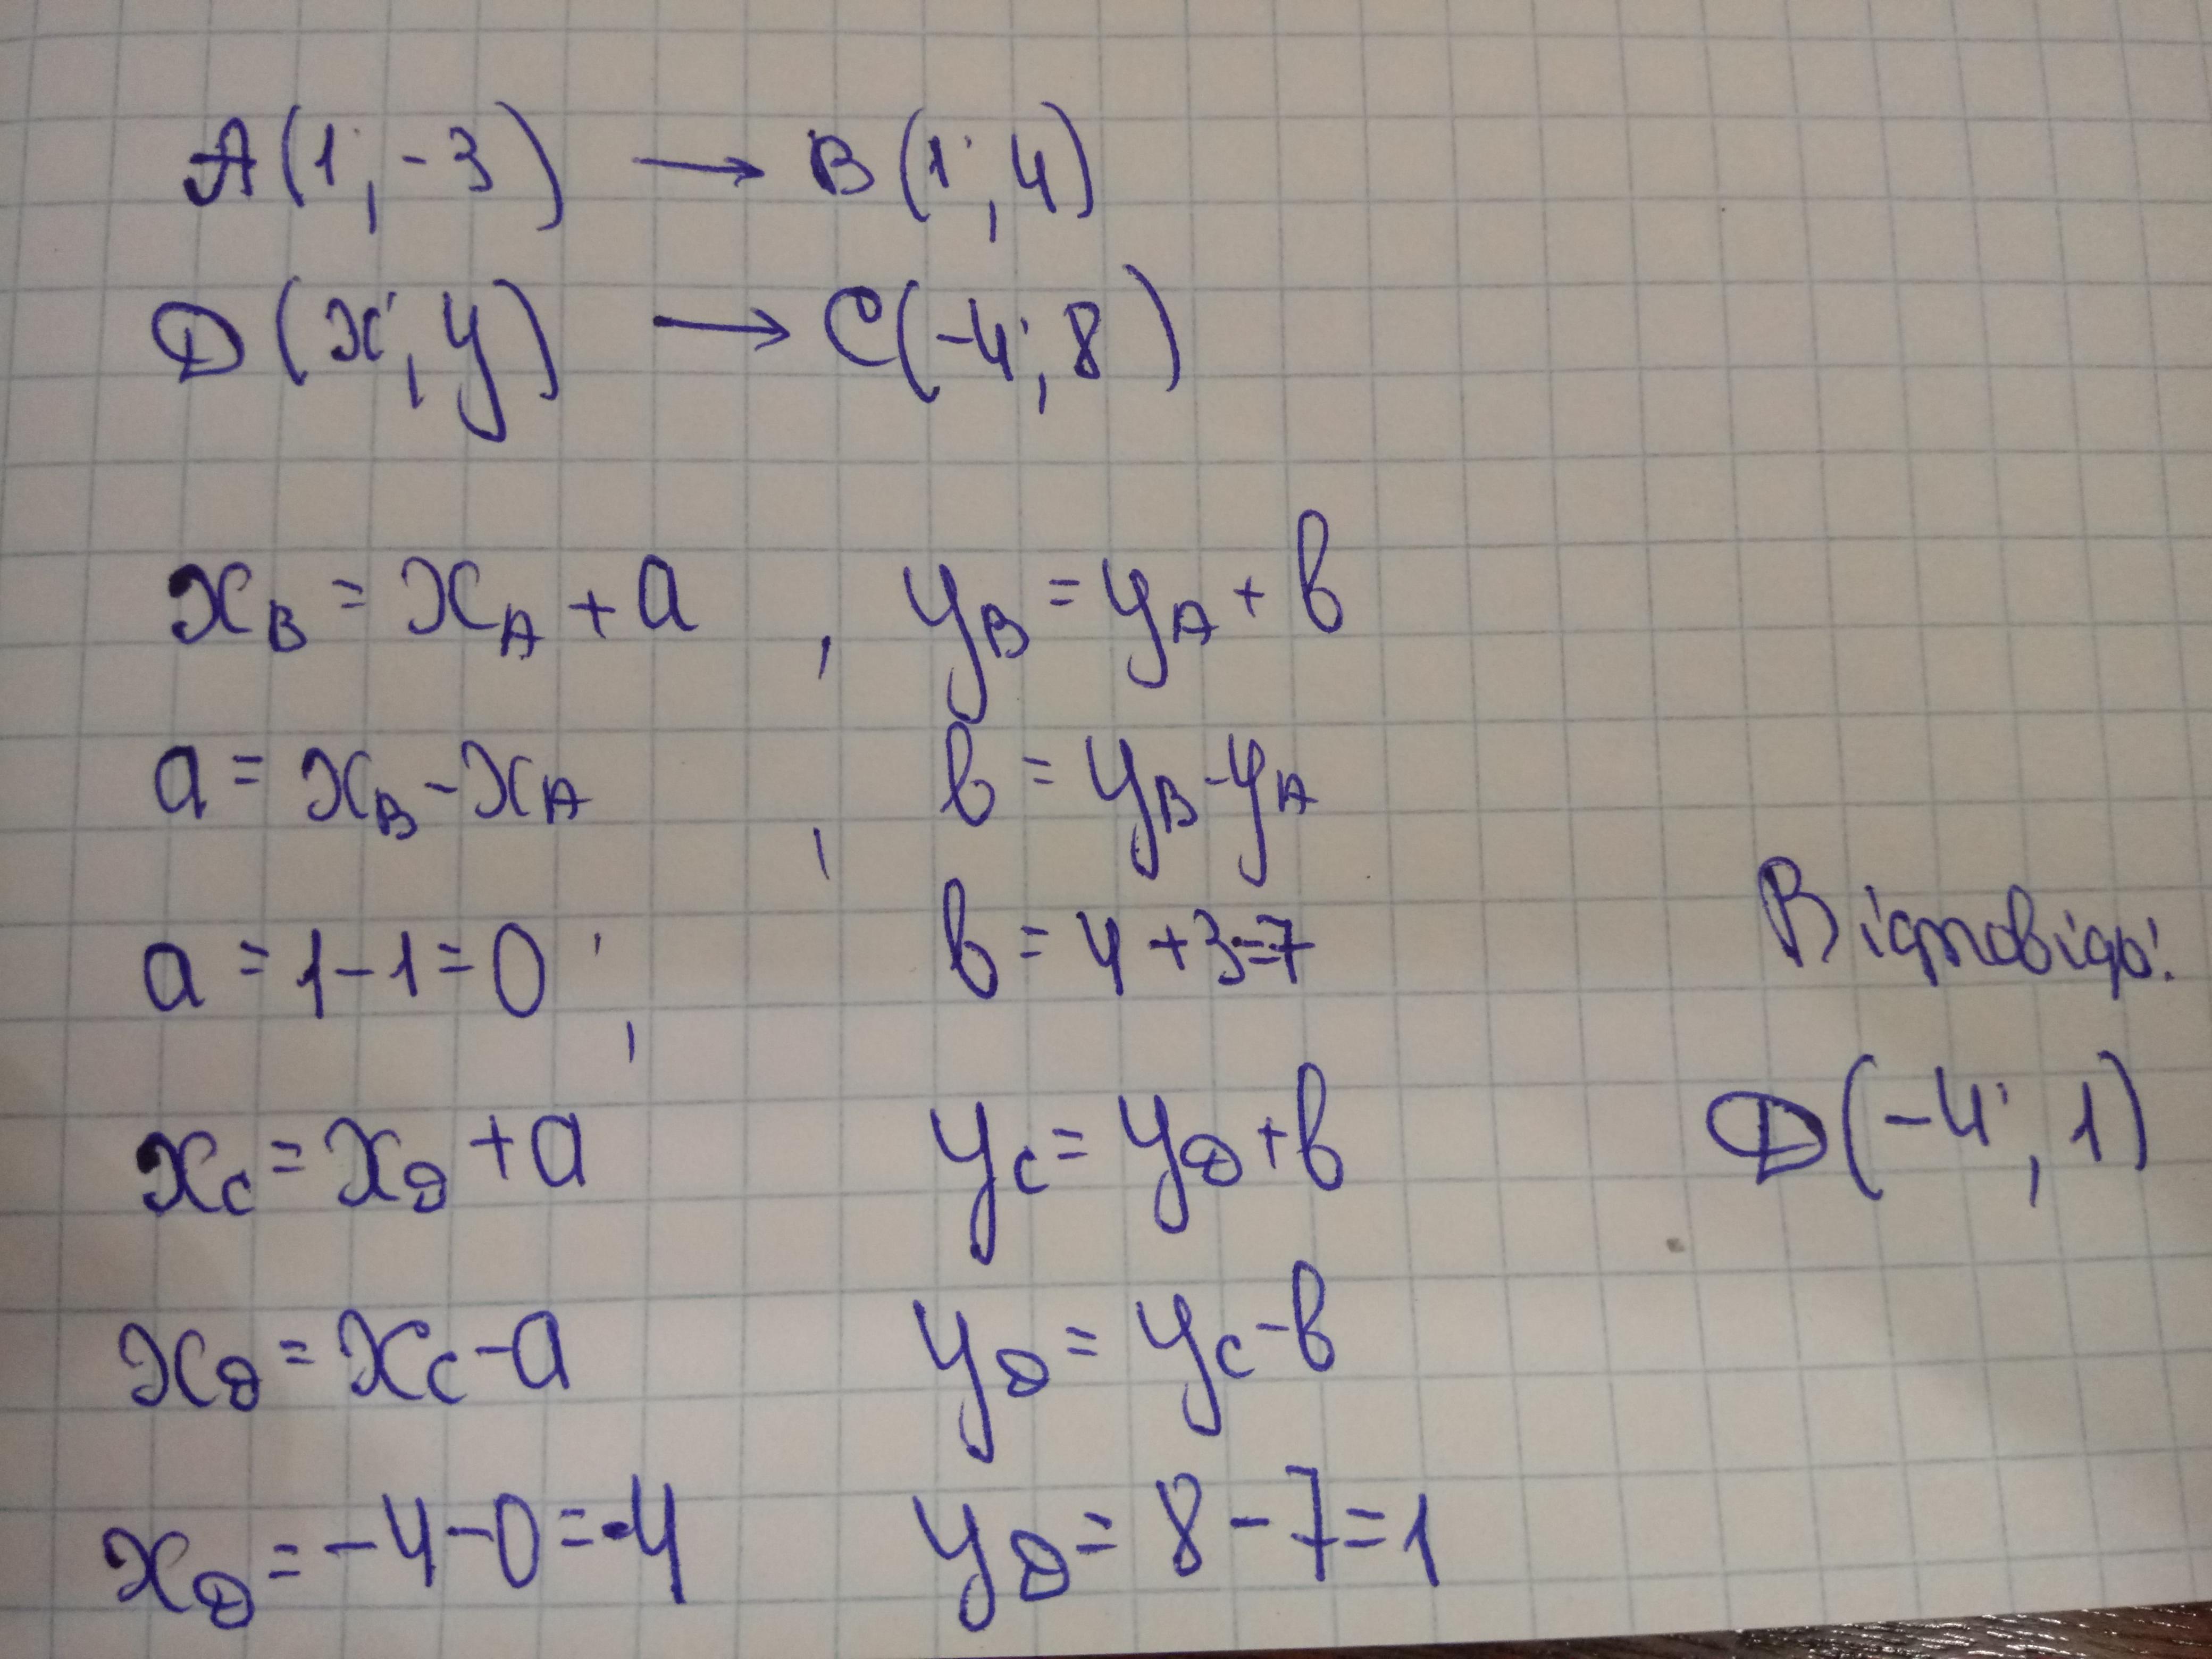 A(1; -3) → B(1; 4)
D(x; y) → C(-4; 8)
x_B = x_A + a , y_B = y_A + b
a = x_B - x_A , b = y_B - y_A
a = 1 - 1 = 0 ; b = 4 + 3 = 7
x_C = x_D + a y_C = y_D + b
x_D = x_C - a y_D = y_C - b
x_D = -4 - 0 = -4 y_D = 8 - 7 = 1
Відповідь:
D(-4; 1)